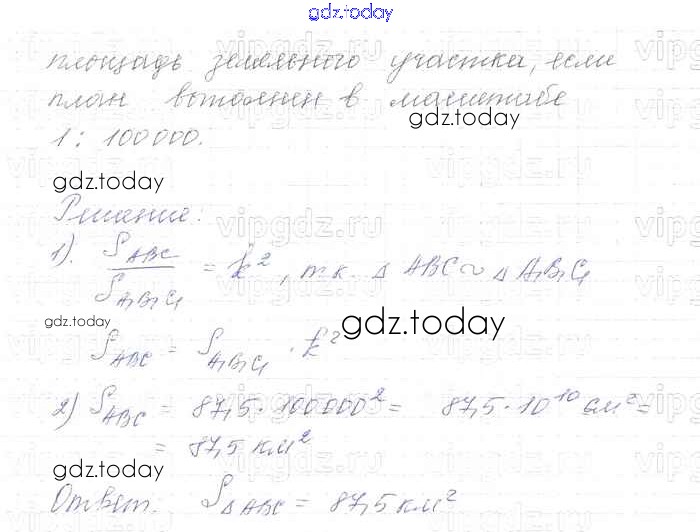 gdz.today
площадь земельного участка, если
план выполнен в масштабе
gdz.today
1 : 100000.
gdz.today
Решение:
1). S_ABC / S_A₁B₁C₁ = k², т.к. △ ABC ~ △ A₁B₁C₁
gdz.today
gdz.today
S_ABC = S_A₁B₁C₁ · k²
2) S_ABC = 87,5 · 100000² = 87,5 · 10¹⁰ см² =
= 87,5 км²
gdz.today
Ответ. S_△ABC = 87,5 км²
gdz.today